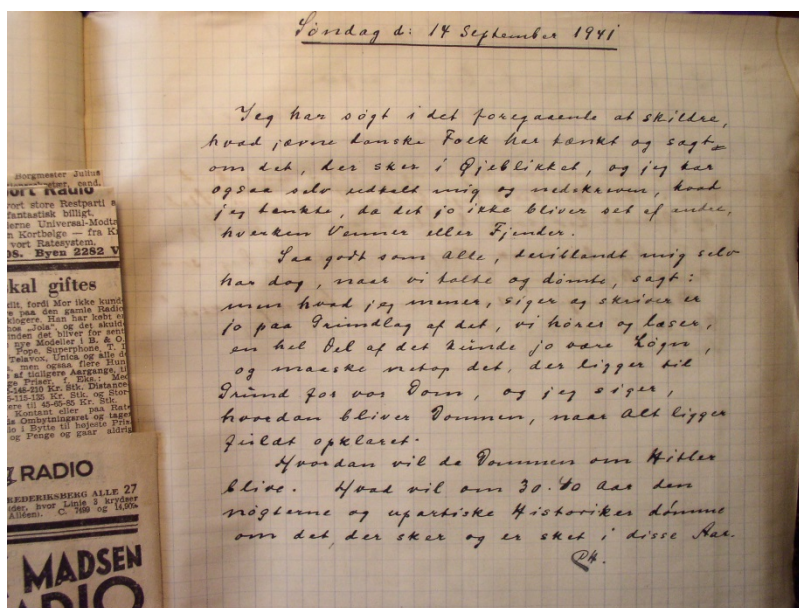 Søndag d: 14 September 1941
Jeg har søgt i det foregaaende at skildre,
hvad jævne danske Folk har tænkt og sagt
om det, der sker i Øjeblikket, og jeg har
ogsaa selv udtalt mig og nedskreven, hvad
jeg tænkte, da det jo ikke bliver set af andre,
hverken Venner eller Fjender.
Saa godt som Alle, deriblandt mig selv
har dog, naar vi talte og dømte, sagt:
men hvad jeg mener, siger og skriver er
jo paa Grundlag af det, vi hører og læser,
en hel Del af det kunde jo være Løgn,
og maaske netop det, der ligger til
Grund for vor Dom, og jeg siger,
hvordan bliver Dommen, naar Alt ligger
fuldt opklaret.
Hvordan vil de Dommen om Hitler
blive. Hvad vil om 30-40 Aar den
nøgterne og upartiske Historiker dømme
om det, der sker og er sket i disse Aar.
PH.
Borgmester Julius
cand.
ort Radio
vort store Restparti
fantastisk billigt.
erne Universal-Modta
n Kortbølge — fra K
vort Ratesystem.
os. Byen 2282 V
kal giftes
dt, fordi Mor ikke kund
e paa den gamle Radio
klogere. Han har købt e
hos „Jola", og det skuld
inden det bliver for sent
nye Modeller i B. & O.
Pope, Superphone, T.
Telavox, Unica og alle d
, men ogsaa flere Hun
af tidligere Aargange, ti
ge Priser, f. Eks.: Med
-148-210 Kr. Stk. Distance
5-115-135 Kr. Stk. og Stor
ere til 45-65-85 Kr. Stk.
Kontant eller paa Rat
la Ombytningsret og tage
io i Bytte til højeste Pris
og Penge og gaar aldri
RADIO
FREDERIKSBERG ALLE 27
hvor Linie 3 krydser
Alléen). C. 7499 og 14,90
MADSEN
RADIO